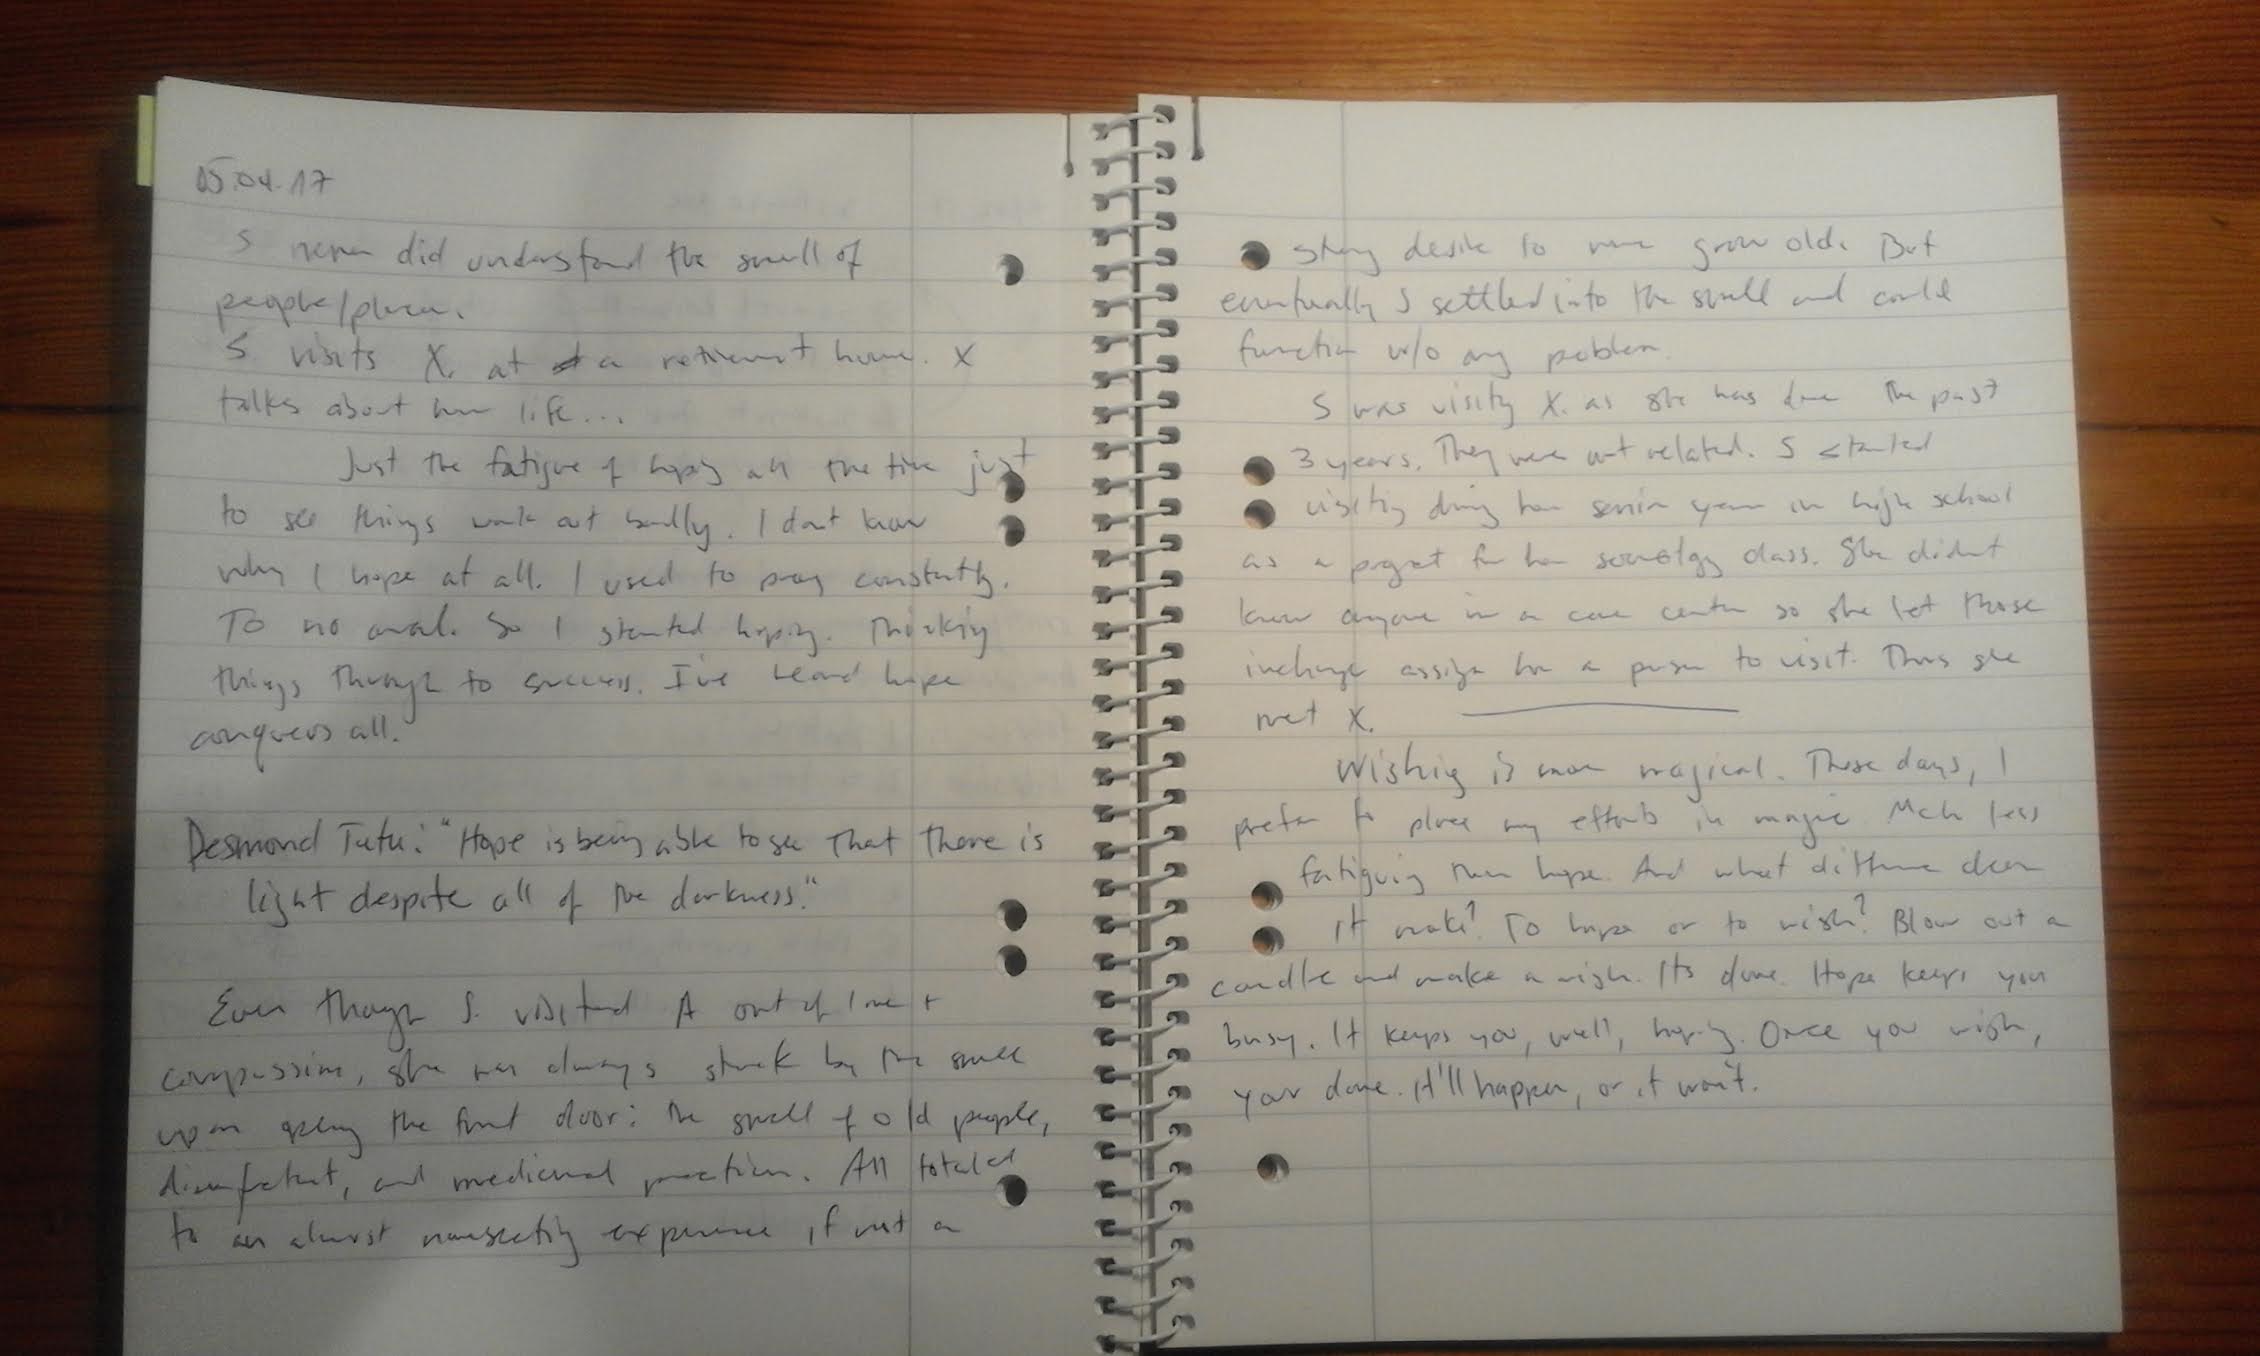 05.04.17
S never did understand the smell of
people/places.
S visits X. at a retirement home. X
talks about her life...
Just the fatigue of hoping all the time just
to see things work out badly. I dont know
why I hope at all. I used to pray constantly.
To no avail. So I started hoping. Thinking
things through to success. I've heard hope
conquers all.
Desmond Tutu: "Hope is being able to see that there is
light despite all of the darkness."
Even though S. visited A out of love +
compassion, she was always struck by the smell
upon opening the front door: the smell of old people,
disinfectant, and medicinal practices. All totaled
to an almost nauseating experience, if not a
strong desire to never grow old. But
eventually S settled into the smell and could
function w/o any problem.
S was visiting X. as she has done the past
3 years. They were not related. S started
visiting during her senior year in high school
as a project for her sociology class. She didnt
know anyone in a care center so she let those
incharge assign her a person to visit. Thus she
met X.
Wishing is more magical. These days, I
prefer to place my efforts in magic. Mch less
fatiguing than hope. And what difference does
it make? To hope or to wish? Blow out a
candle and make a wish. Its done. Hope keeps you
busy. It keeps you, well, hoping. Once you wish,
your done. It'll happen, or it won't.